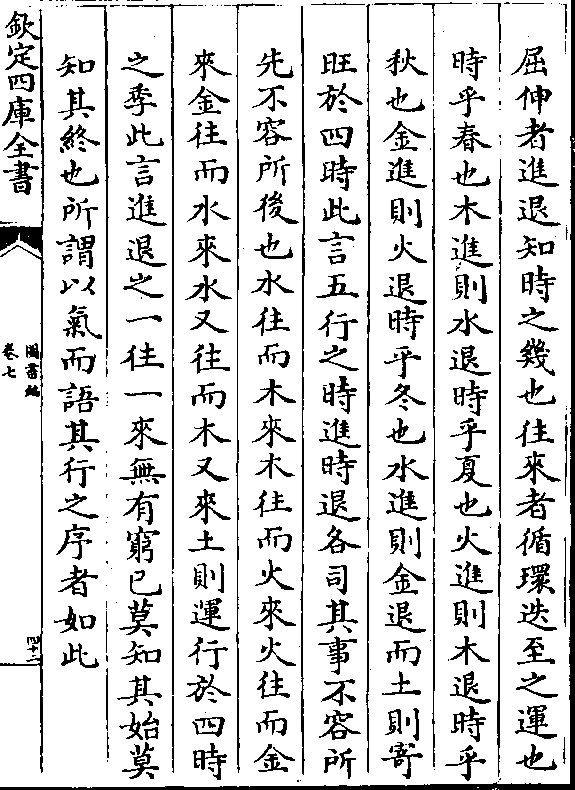 屈伸者進退知時之幾也往來者循環迭至之運也
時乎春也木進則水退時乎夏也火進則木退時乎
秋也金進則火退時乎冬也水進則金退而土則寄
旺於四時此言五行之時進時退各司其事不容所
先不容所後也水往而木來木往而火來火往而金
來金往而水來水又往而木又來土則運行於四時
之季此言進退之一往一來無有窮已莫知其始莫
知其終也所謂以氣而語其行之序者如此
欽定四庫全書
圖書編
卷七
四十二